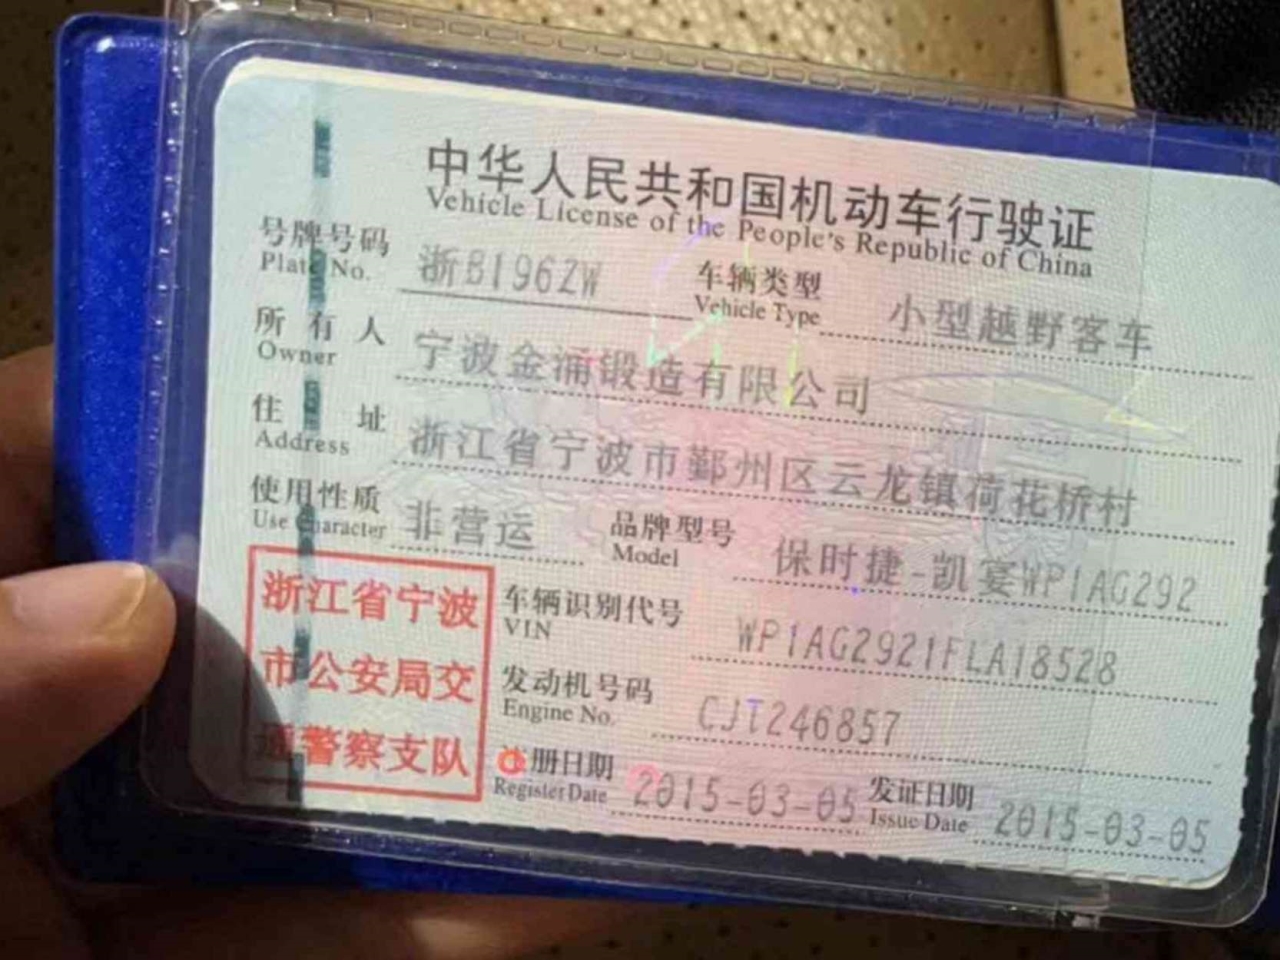 中华人民共和国机动车行驶证
Vehicle License of the People's Republic of China
号牌号码 浙B196ZW 车辆类型 小型越野客车
Plate No. Vehicle Type
所有人 宁波金涌锻造有限公司
Owner
住址 浙江省宁波市鄞州区云龙镇荷花桥村
Address
使用性质 非营运 品牌型号 保时捷-凯宴WP1AG292
Use Character Model
浙江省宁波 车辆识别代号 WP1AG2921FLA18528
VIN
市公安局交 发动机号码 CJT246857
Engine No.
通警察支队 注册日期 2015-03-05 发证日期 2015-03-05
Register Date Issue Date